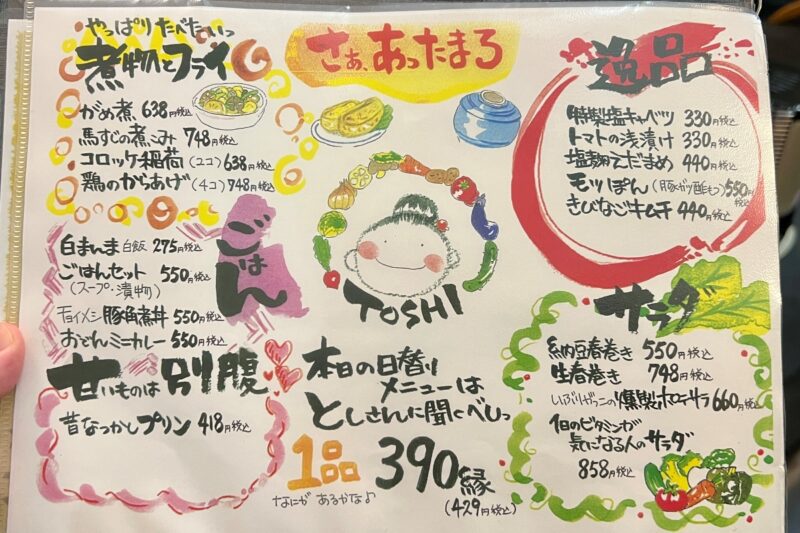 やっぱりたべたいっ
煮物とフライ
がめ煮 638円税込
馬すじの煮こみ 748円税込
コロッケ稲荷 (2コ) 638円税込
鶏のからあげ (4コ) 748円税込
ごはん
白まんま 白飯 275円税込
ごはんセット 550円税込
(スープ・漬物)
チョイメシ 豚角煮丼 550円税込
おでんミニカレー 550円税込
甘いものは別腹
昔なつかしプリン 418円税込
さぁ、あったまろ
TOSHI
本日の日替り
メニューは
としさんに聞くべしっ
1品 390縁
(429円税込)
なにが あるかな♪
逸品
特製塩キャベツ 330円税込
トマトの浅漬け 330円税込
塩麹えだまめ 440円税込
モツぽん (豚ガツ酢もつ) 550円税込
きびなごキムチ 440円税込
サラダ
納豆春巻き 550円税込
生春巻き 748円税込
いぶりがっこの燻製ポテサラ 660円税込
1日のビタミンが
気になる人のサラダ
858円税込